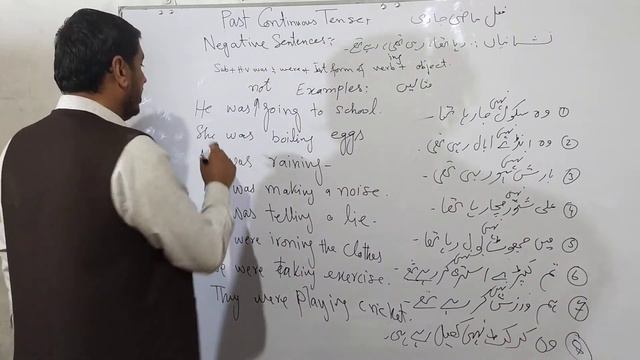 Past Continuous Tense, فعل ماضی جاری
Negative Sentences:- نشانیاں: رہا تھا، رہی تھی، رہے تھے۔
Sub + HV was & were + Ist form of verb + ing object.
Examples: مثالیں
not نہیں
He was going to school. وہ سکول جا رہا تھا۔ ①
نہیں
She was boiling eggs وہ انڈے ابال رہی تھی ②
نہیں
was raining- بارش ہو رہی تھی۔ ③
نہیں
was making a noise. علی شور مچا رہا تھا۔ ④
نہیں
was telling a lie. میں جھوٹ بول رہا تھا ⑤
نہیں
were ironing the clothes تم کپڑے استری کر رہے تھے۔ ⑥
نہیں
were taking exercise. ہم ورزش کر رہے تھے۔ ⑦
Thy were playing cricket. وہ کرکٹ نہیں کھیل رہے ہیں۔ ⑧